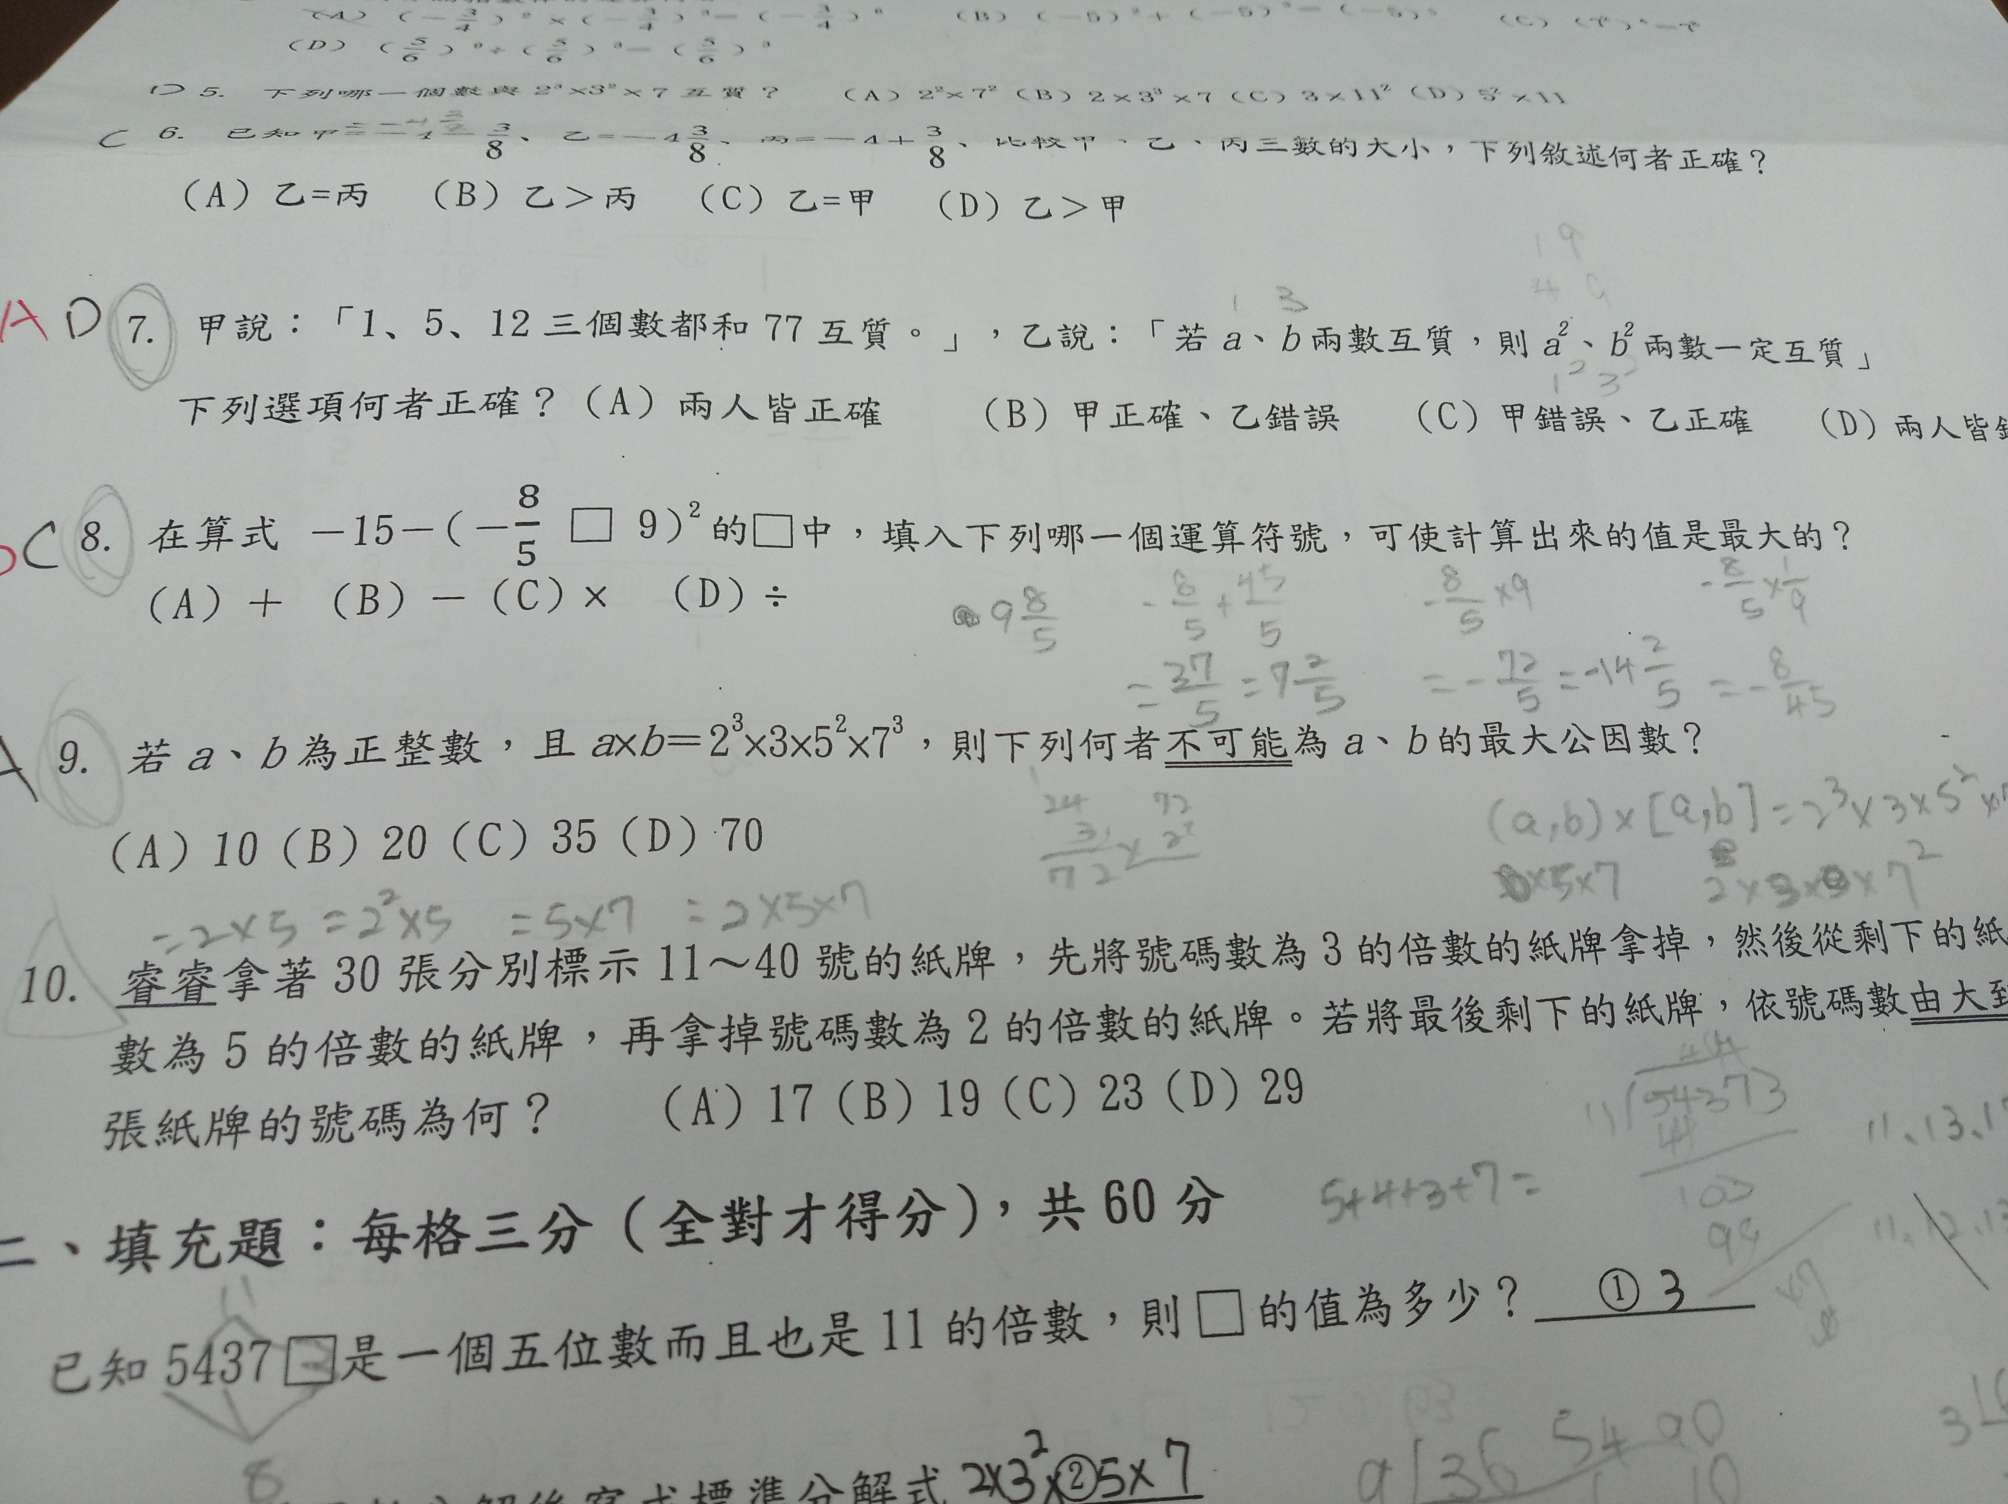 (D) (5/6)⁹÷(5/6)³－(5/6)³
D 5. 下列哪一個數與 2³×3²×7 互質？ (A) 2²×7² (B) 2×3³×7 (C) 3×11² (D) 5²×11
C 6. 已知甲=－4－3/8、乙=－4 3/8、丙=－4+3/8、比較甲、乙、丙三數的大小，下列敘述何者正確？
(A) 乙=丙 (B) 乙＞丙 (C) 乙=甲 (D) 乙＞甲
19
49
1 3
A D 7. 甲說：「1、5、12 三個數都和 77 互質。」，乙說：「若 a、b 兩數互質，則 a²、b² 兩數一定互質」
1² 3²
下列選項何者正確？(A) 兩人皆正確 (B) 甲正確、乙錯誤 (C) 甲錯誤、乙正確 (D) 兩人皆
C 8. 在算式 －15－(－8/5 □ 9)² 的□中，填入下列哪一個運算符號，可使計算出來的值是最大的？
(A) ＋ (B) － (C) × (D) ÷
9 8/5 -8/5+45/5 -8/5×9 -8/5×1/9
=37/5=7 2/5 =-72/5=-14 2/5 =-8/45
A 9. 若 a、b 為正整數，且 a×b=2³×3×5²×7³，則下列何者不可能為 a、b 的最大公因數？
(A) 10 (B) 20 (C) 35 (D) 70
24 72
72
(a,b)×[a,b]=2³×3×5²×
×5×7
=2×5 =2²×5 =5×7 =2×5×7
10. 睿睿拿著 30 張分別標示 11～40 號的紙牌，先將號碼數為 3 的倍數的紙牌拿掉，然後從剩下的紙
數為 5 的倍數的紙牌，再拿掉號碼數為 2 的倍數的紙牌。若將最後剩下的紙牌，依號碼數由大到
張紙牌的號碼為何？ (A) 17 (B) 19 (C) 23 (D) 29
11 54373
44
103
99
11、13、1
11、12、13
5+4+3+7=
二、填充題：每格三分（全對才得分），共 60 分
11
已知 5437□是一個五位數而且也是 11 的倍數，則□的值為多少？ ① 3
8
寫成標準分解式 2×3²×②5×7
9 36 54 90
10
3